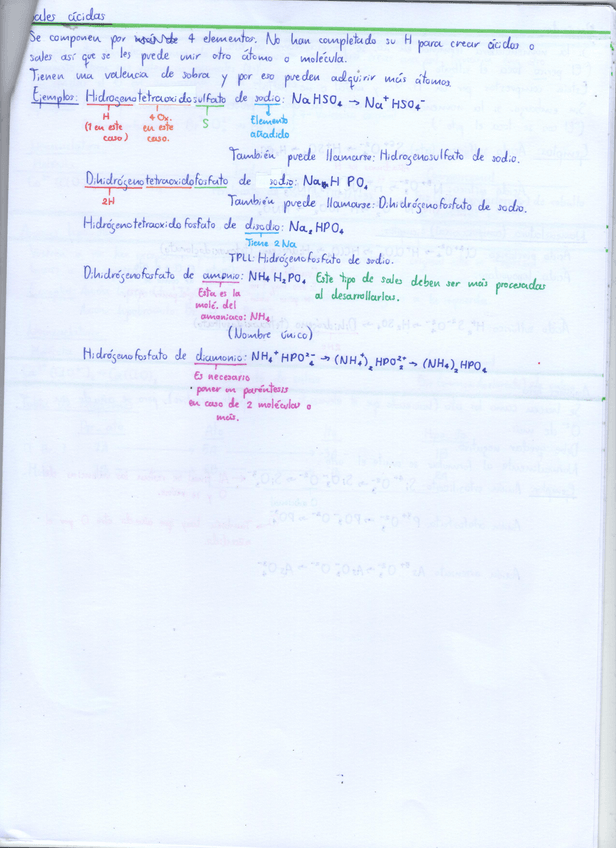 Sales ácidas
Se componen por 4 elementos. No han completado su H para crear ácidos o
sales así que se les puede unir otro átomo o molécula.
Tienen una valencia de sobra y por eso pueden adquirir más átomos.
Ejemplos: Hidrogenotetraoxidosulfato de sodio: NaHSO₄ → Na⁺HSO₄⁻
H 4 Ox. S Elemento
(1 en este en este añadido
caso) caso.
También puede llamarte: Hidrogenosulfato de sodio.
Dihidrógenotetraoxidofosfato de sodio: Na H PO₄
2H También puede llamarse: Dihidrógenofosfato de sodio.
Hidrógenotetraoxidofosfato de disodio: Na₂HPO₄
Tiene 2 Na
TPLL: Hidrógenofosfato de sodio.
Dihidrógenofosfato de amonio: NH₄H₂PO₄ Este tipo de sales deben ser más procesadas
Esta es la al desarrollarlas.
molé. del
amoniaco: NH₄
(Nombre único)
Hidrógenofosfato de diamonio: NH₄⁺HPO₄²⁻ → (NH₄⁺)₂HPO₄²⁺ → (NH₄)₂HPO₄
Es necesario
poner un paréntesis
en caso de 2 moléculas o
más.